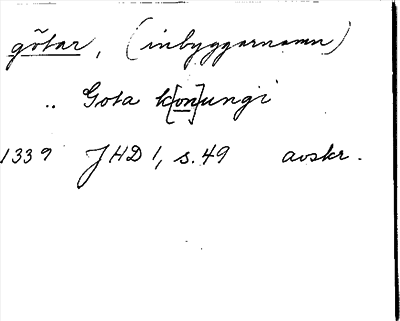 götar, (inbyggarnamn)
.. Gota k[on]ungi
1339 JHD 1, s. 49 avskr.